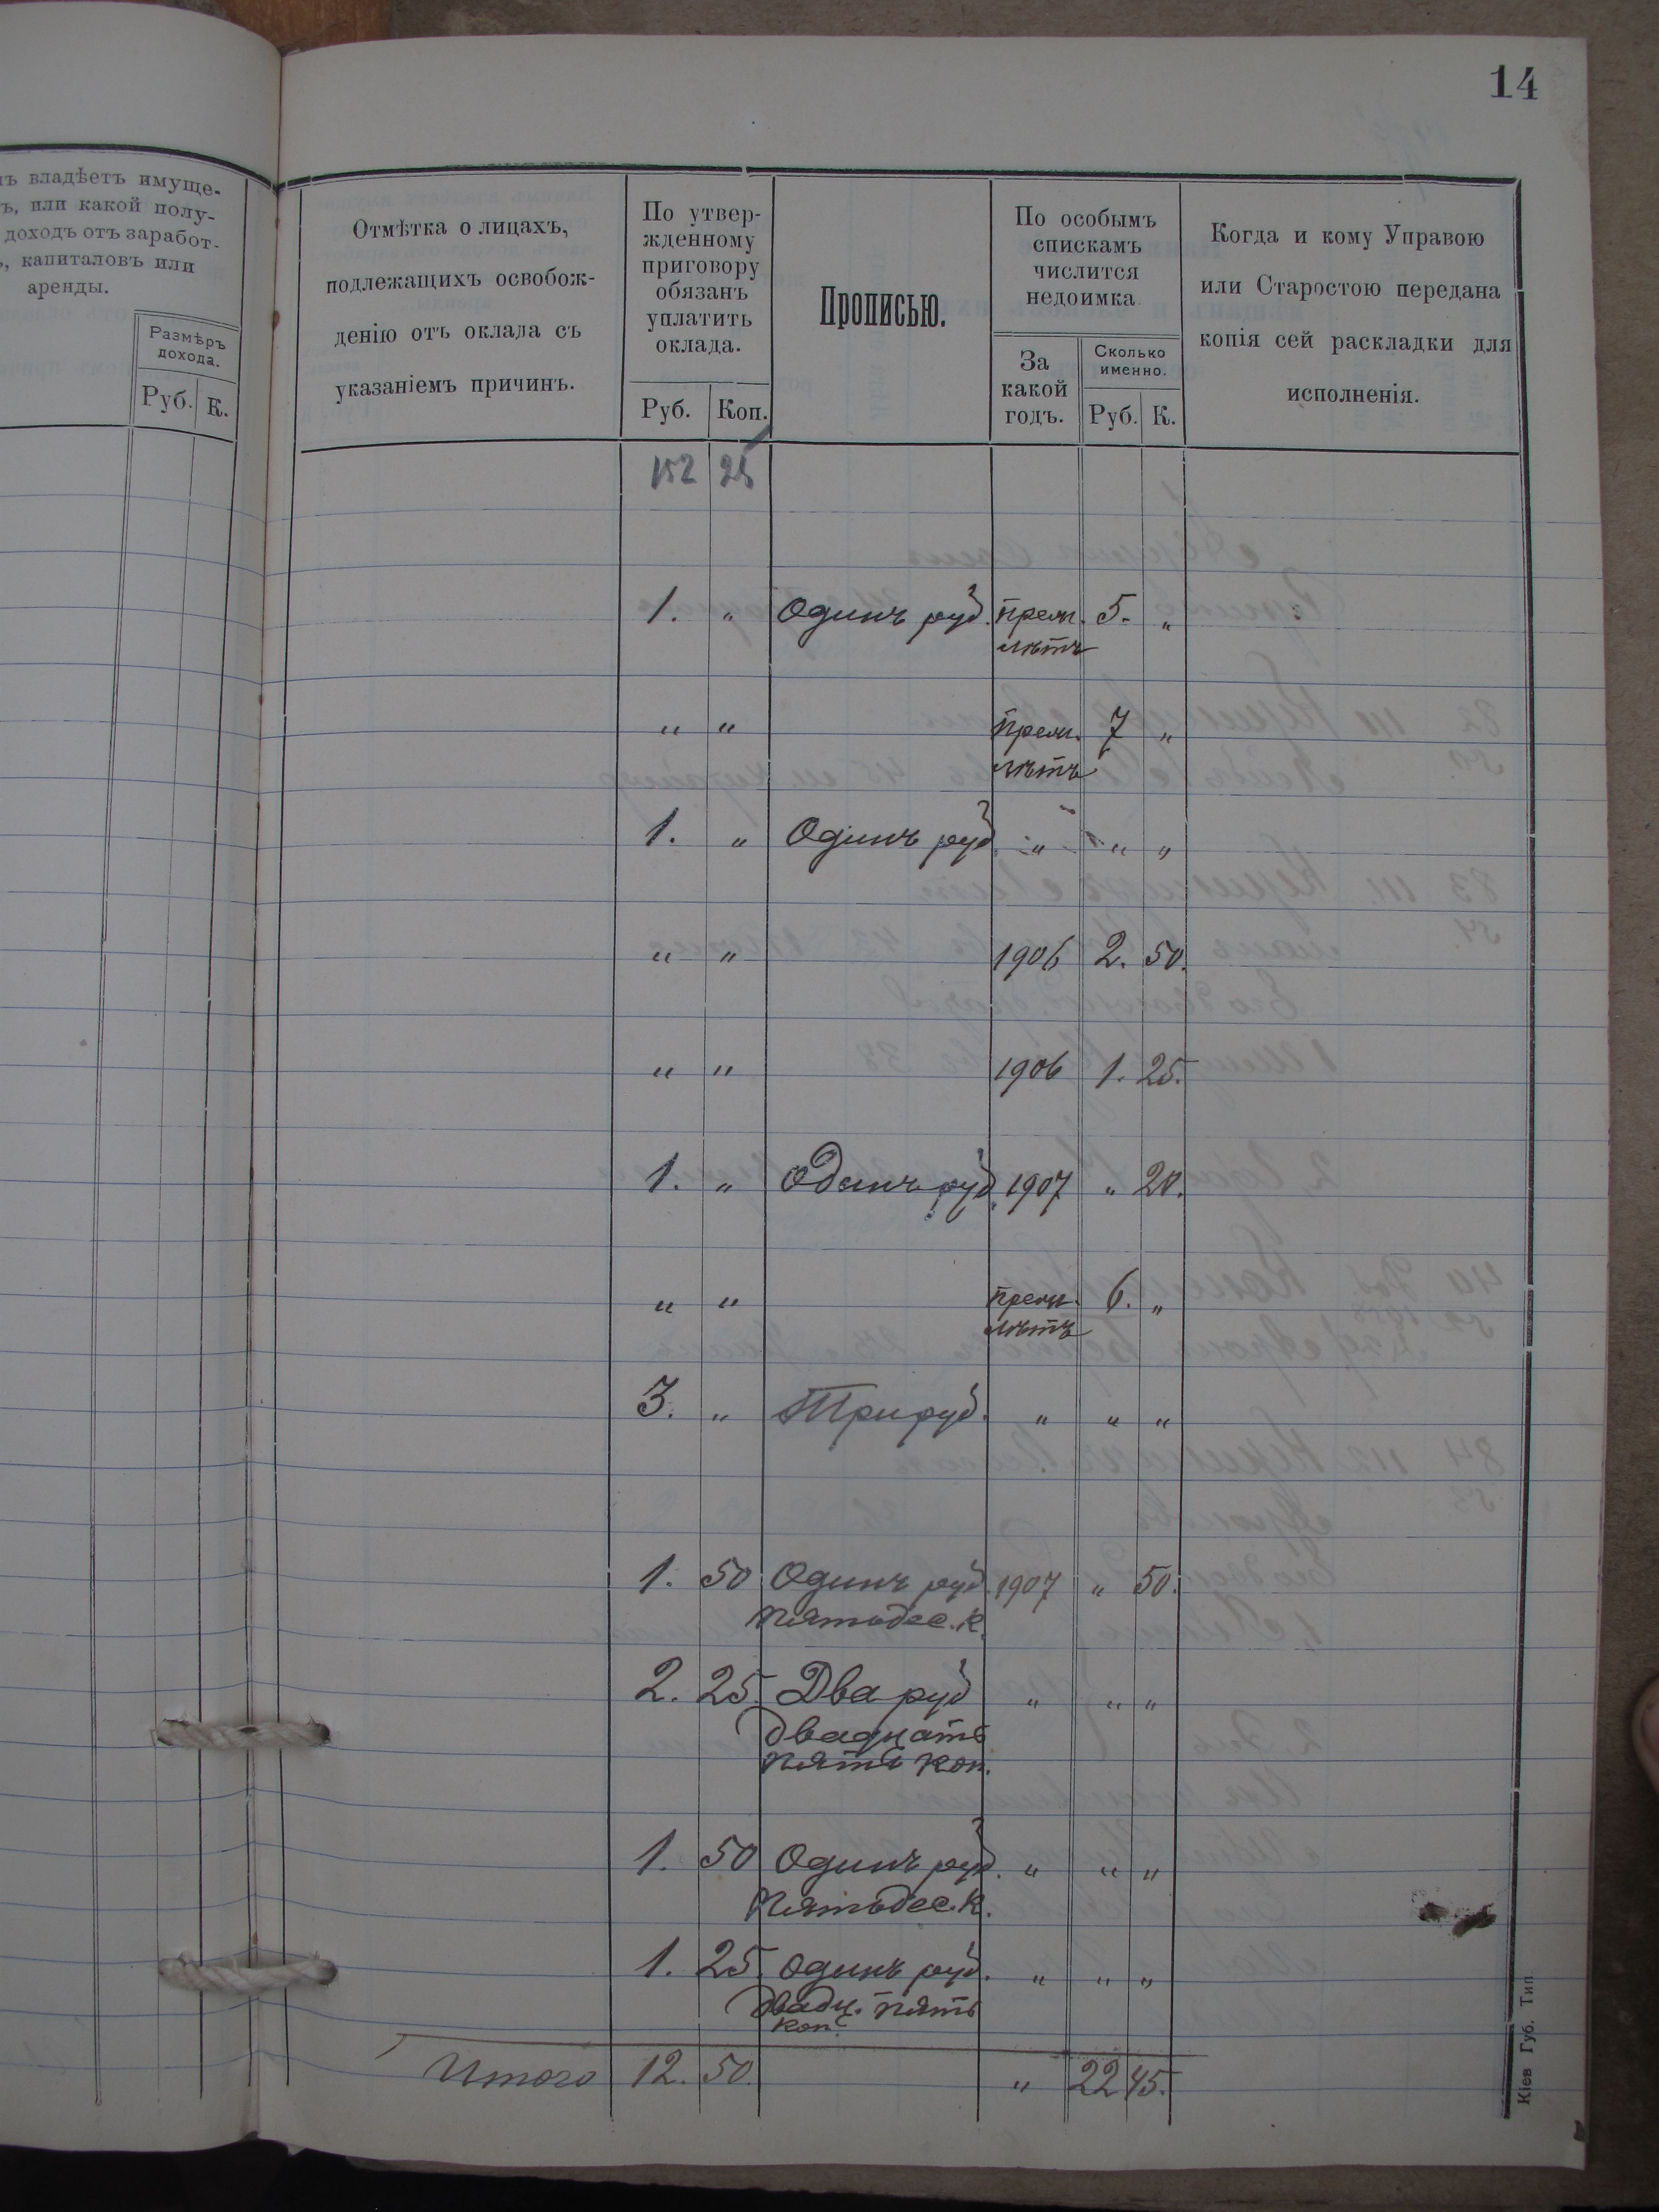 14
владѣетъ имуще-
или какой полу-
доходъ отъ заработ-
капиталовъ или
аренды.
Размѣръ
дохода.
Руб. К.
Отмѣтка о лицахъ,
подлежащихъ освобож-
денію отъ оклада съ
указаніемъ причинъ.
По утвер-
жденному
приговору
обязанъ
уплатить
оклада.
Руб. Коп.
Прописью.
По особымъ
спискамъ
числится
недоимка
За
какой
годъ.
Сколько
именно.
Руб. К.
Когда и кому Управою
или Старостою передана
копія сей раскладки для
исполненія.
152 25
1. „ Одинъ руб. прем. 5. „
лѣтъ
„ „ прем. 7 „
лѣтъ
1. „ Одинъ руб. „ „ „
„ „ 1906 2. 50.
„ „ 1906 1. 25.
1. „ Одинъ руб. 1907 „ 20.
„ „ прем. 6. „
лѣтъ
3. „ Три руб. „ „ „
1. 50 Одинъ руб. 1907 „ 50.
пятьдес. к.
2. 25. Два руб „ „ „
двадцать
пять коп.
1. 50 Одинъ руб. „ „ „
пятьдес. к.
1. 25. Одинъ руб. „ „ „
двадц. пять
коп.
Итого 12. 50. „ 22 45.
Кіев Губ. Тип